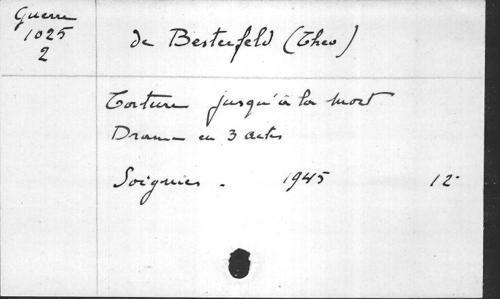 Guerre
1025
2
de Besterfeld (Theo)
Torture jusqu'à la mort
Drame en 3 actes
Soignies. 1945 12